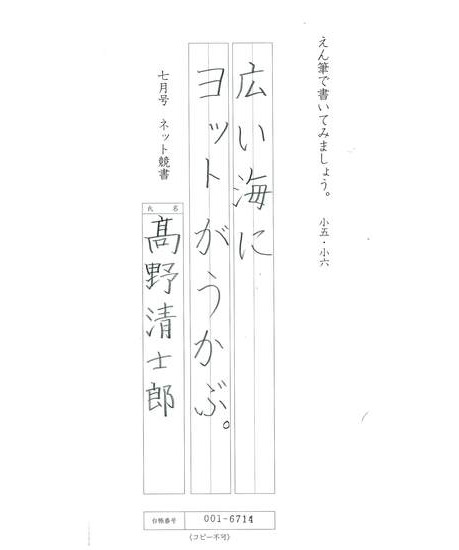 えん筆で書いてみましょう。 小五・小六
広い海に
ヨットがうかぶ。
七月号 ネット競書
氏名
髙野清士郎
台帳番号 001-6714
(コピー不可)